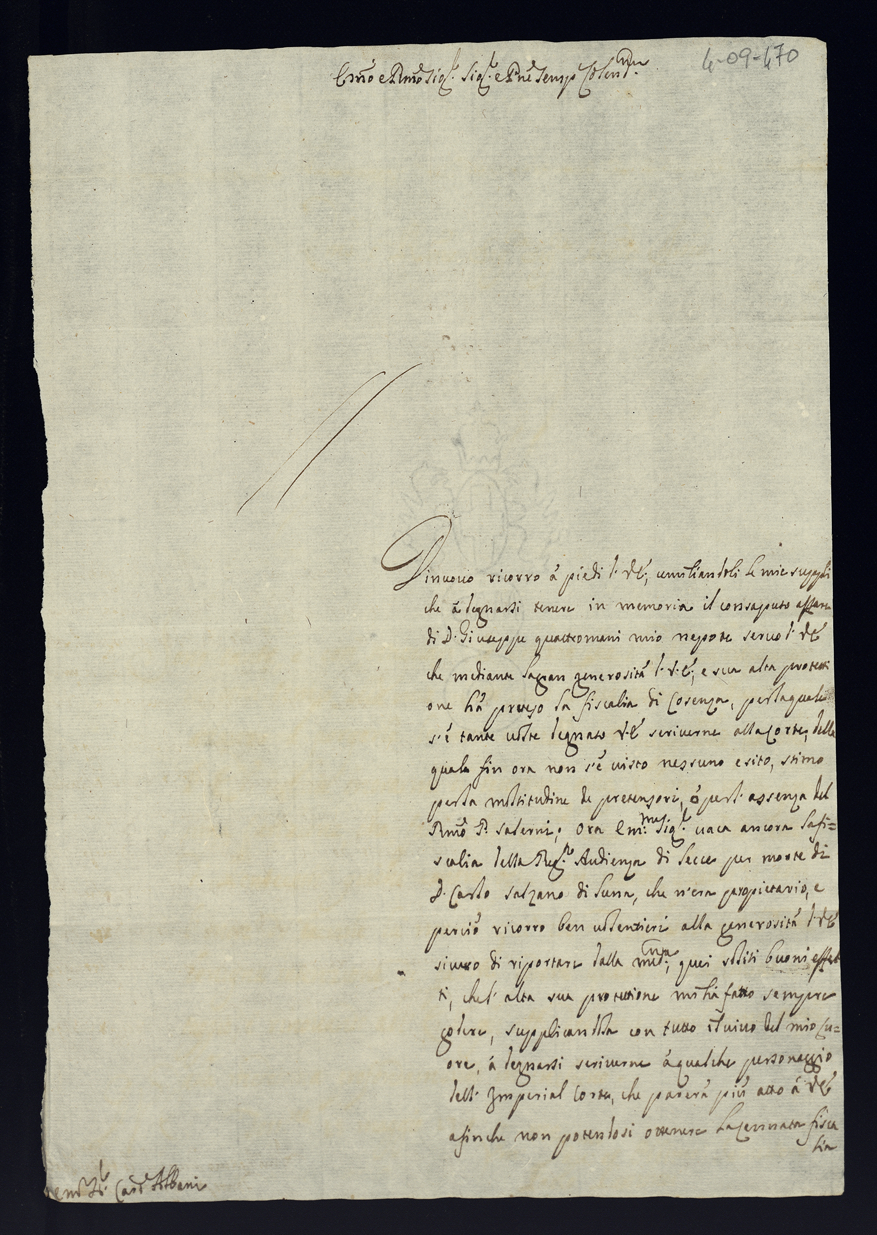 4-09-470
Em̃o e Rm̃o Sig.r Sig.r e Prñe Semp. Colend.mo
Dinuouo ricorro á piedi di V.E., umiliandoli le mie suppli
che á degnarsi tenere in memoria il consaputo affare
di D. Giuseppe quattromani mio nepote seruo di V.E.
che mediante la gran generosità di V.E., e sua alta protetti
one há preso la fiscalia di Cosenza, per la quale
s'é tante uolte degnato V.E. scriuerne alla Corte, della
quale fin ora non s'é uisto nessuno esito, stimo
per la moltitudine de pretensori, ó per l'assenza del
Rm̃o P. Salerni; ora Em.mo Sig.r uaca ancora la fi=
scalia della Reg.a Audienza di Lecce per morte di
D. Carlo Salzano di Luna, che n'era propietario, e
perciò ricorro ben uolentieri alla generosità di V.E.
sicuro di riportare dalla med.ma, quei soliti buoni effet
ti, che l'alta sua protettione mi há fatto sempre
godere, supplicandola con tutto il uiuo del mio Cu=
ore, á degnarsi scriuerne á qualche personaggio
dell'Imperial Corte, che parerá più atto á V.E.
afinche non potendosi ottenere la cennata fisca
lia
Em. Sig. Card. Albani